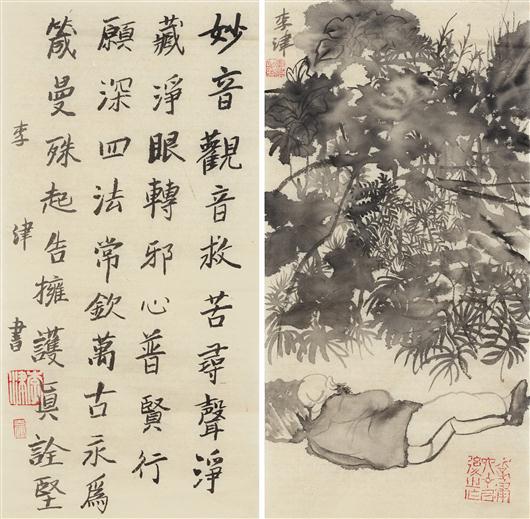 妙音觀音救苦尋聲淨
藏淨眼轉邪心普賢行
願深四法常欽萬古永爲
箴曼殊起告擁護眞詮堅
李津書
李津